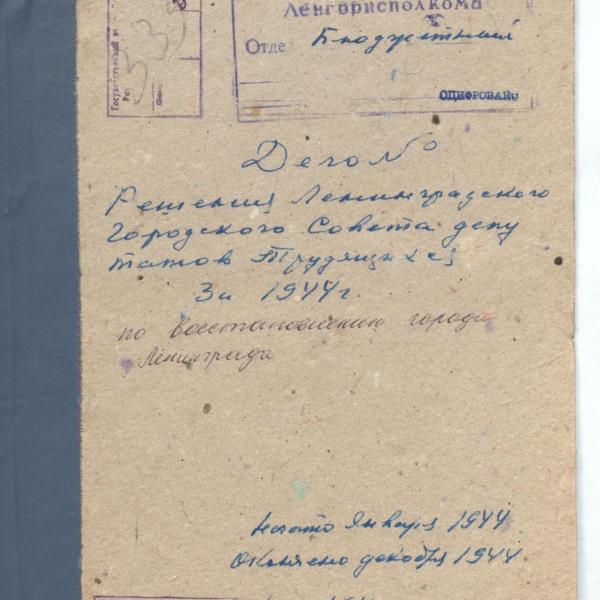 Ленгорисполкома
Отде Бюджетный
ОЦИФРОВАНО
339
Дело №
Решения Ленинградского
Городского Совета депу
татов Трудящихся
За 1944 г.
по восстановлению города
Ленинграда
Начато Января 1944
Окончено декабря 1944